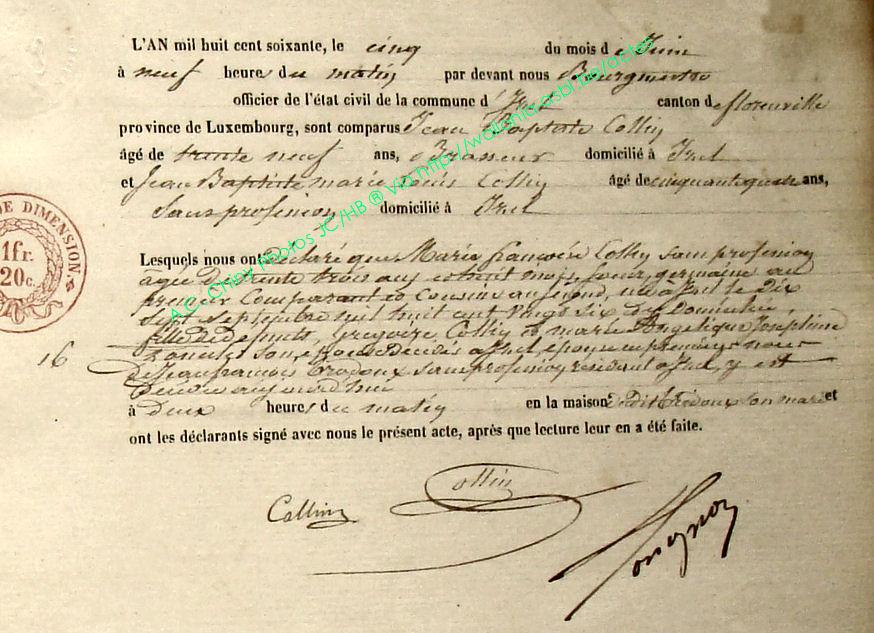 L'AN mil huit cent soixante, le cinq du mois de Juin
à neuf heures du matin par devant nous Bourgmestre
officier de l'état civil de la commune d'Izel canton de florenville
province de Luxembourg, sont comparus Jean Baptiste Collin
âgé de trente neuf ans, Brasseur domicilié à Izel
et Jean Baptiste marie Louis Collin âgé de cinquante quatre ans,
Sans profession domicilié à Izel
DE DIMENSION
1fr.
20c.
Lesquels nous ont déclaré que Marie françoise Collin sans profession
âgée de trente trois ans et huit mois, soeur germaine au
premier Comparant et Cousine au second, née à Izel le dix
Sept Septembre mil huit cent vingt six, y Domiciliée,
fille de défunts, Gregoire Collin et marie Angelique Josephine
son épouse décédés à Izel, épouse en premières noces
16
de Jean francois sans profession résidant à Izel, y est
décédée aujourd'hui
à deux heures du matin en la maison dudit son mari et
ont les déclarants signé avec nous le présent acte, après que lecture leur en a été faite.
Collin Collin
A.C. Chiny Photos JC/HB ® Via http://wallonia.asbl.be/actes